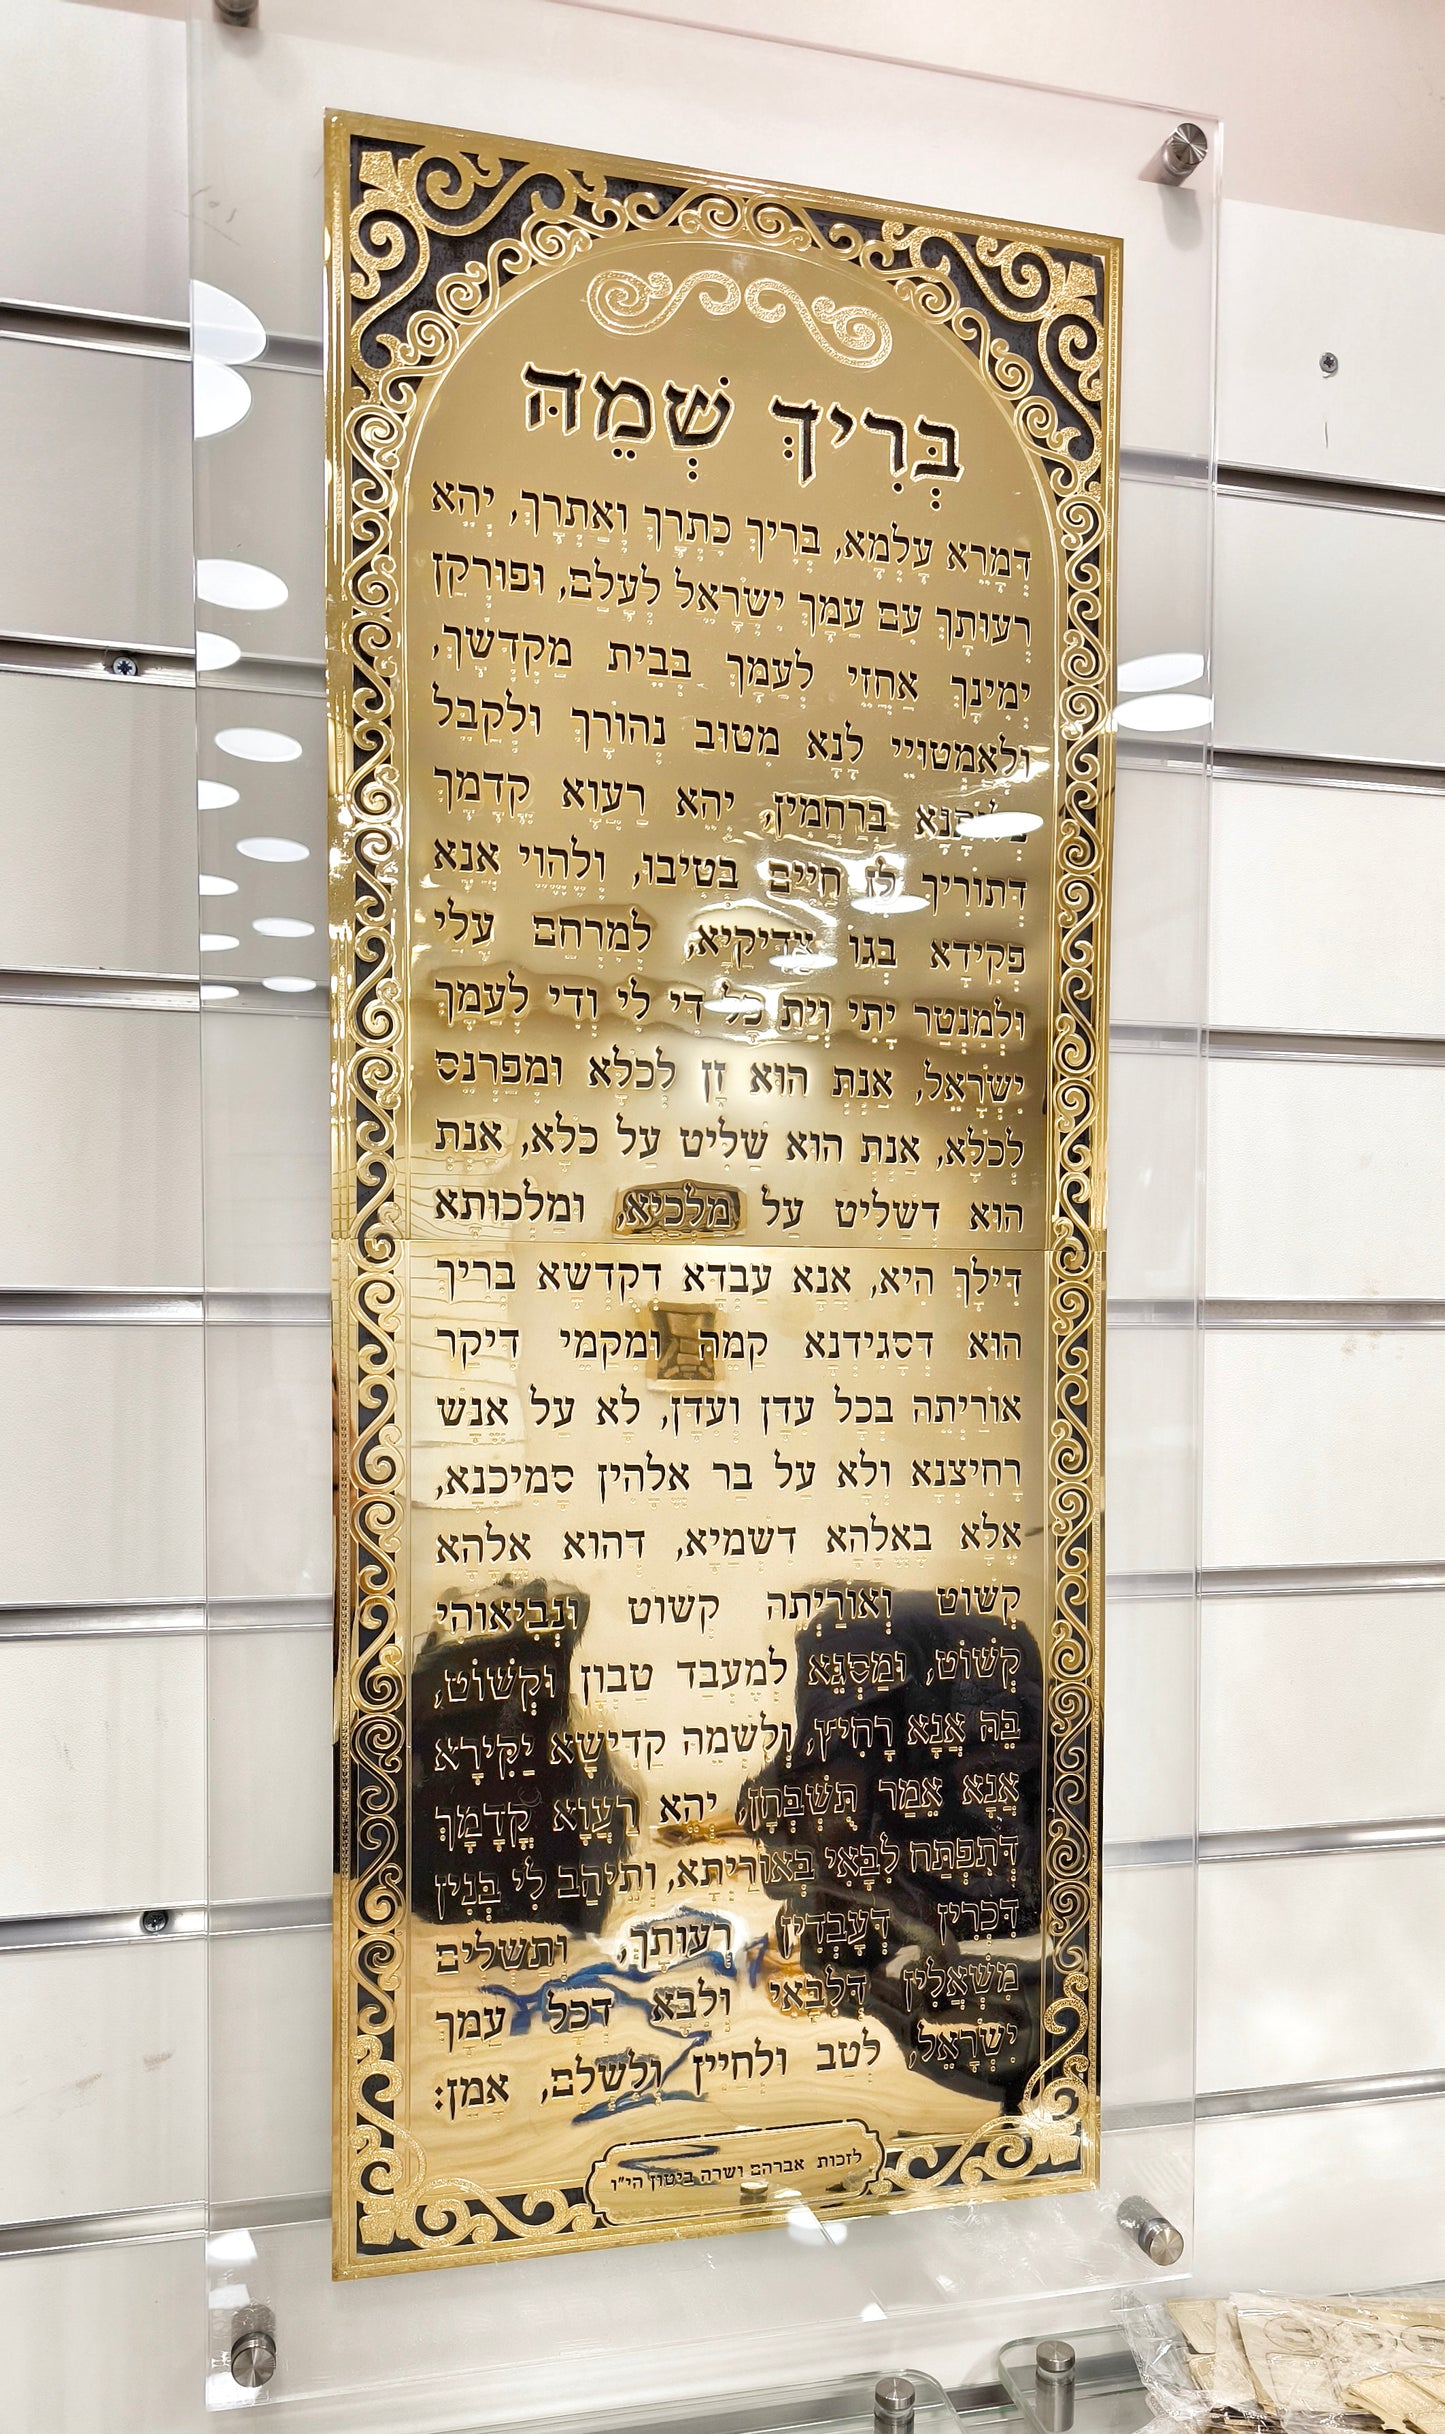 בְּרִיךְ שְׁמֵהּ
דְּמָרֵא עָלְמָא, בְּרִיךְ כִּתְרָךְ וְאַתְרָךְ, יְהֵא
רְעוּתָךְ עִם עַמָּךְ יִשְׂרָאֵל לְעָלַם, וּפוּרְקַן
יְמִינָךְ אַחֲזֵי לְעַמָּךְ בְּבֵית מַקְדְּשָׁךְ,
וּלְאַמְטוּיֵי לָנָא מִטּוּב נְהוֹרָךְ וּלְקַבֵּל
צְלוֹתָנָא בְּרַחֲמִין, יְהֵא רַעֲוָא קֳדָמָךְ
דְּתוֹרִיךְ לָן חַיִּים בְּטִיבוּ, וְלֶהֱוֵי אֲנָא
פְּקִידָא בְּגוֹ צַדִּיקַיָּא, לְמִרְחַם עָלַי
וּלְמִנְטַר יָתִי וְיָת כָּל דִּי לִי וְדִי לְעַמָּךְ
יִשְׂרָאֵל, אַנְתְּ הוּא זָן לְכֹלָּא וּמְפַרְנֵס
לְכֹלָּא, אַנְתְּ הוּא שַׁלִּיט עַל כֹּלָּא, אַנְתְּ
הוּא דְּשַׁלִּיט עַל מַלְכַיָּא, וּמַלְכוּתָא
דִּילָךְ הִיא, אֲנָא עַבְדָּא דְקֻדְשָׁא בְּרִיךְ
הוּא דְּסָגִידְנָא קַמֵּהּ וּמִקַּמֵּי דִּיקַר
אוֹרַיְתֵהּ בְּכָל עִדָּן וְעִדָּן, לָא עַל אֱנָשׁ
רָחִיצְנָא וְלָא עַל בַּר אֱלָהִין סָמִיכְנָא,
אֶלָּא בֶּאֱלָהָא דִשְׁמַיָּא, דְּהוּא אֱלָהָא
קְשׁוֹט וְאוֹרַיְתֵהּ קְשׁוֹט וּנְבִיאוֹהִי
קְשׁוֹט, וּמַסְגֵּא לְמֶעְבַּד טַבְוָן וּקְשׁוֹט,
בֵּהּ אֲנָא רָחִיץ, וְלִשְׁמֵהּ קַדִּישָׁא יַקִּירָא
אֲנָא אֵמַר תֻּשְׁבְּחָן, יְהֵא רַעֲוָא קֳדָמָךְ
דְּתִפְתַּח לִבָּאִי בְּאוֹרַיְתָא, וְתֵיהַב לִי בְּנִין
דִּכְרִין דְּעָבְדִין רְעוּתָךְ, וְתַשְׁלִים
מִשְׁאֲלִין דְּלִבָּאי וְלִבָּא דְכָל עַמָּךְ
יִשְׂרָאֵל, לְטַב וּלְחַיִּין וְלִשְׁלָם, אָמֵן:
לזכות אברהם ושרה ביטון הי"ו